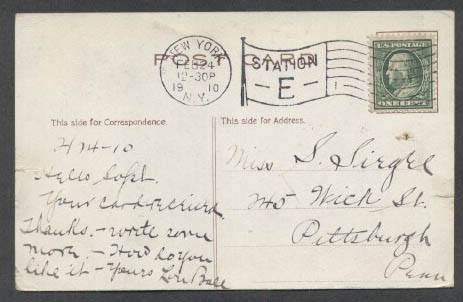 POST CARD
NEW YORK
FEB 24
12-30P
1910
N.Y.
STATION
E
1
U.S. POSTAGE
ONE CENT
This side for Correspondence.
This side for Address.
Hello Soph.
Your card received.
Thanks. - write some
more. - How do you
like it - Yours Lou
Miss S. Siegel
Wick St.
Pittsburgh
Penn